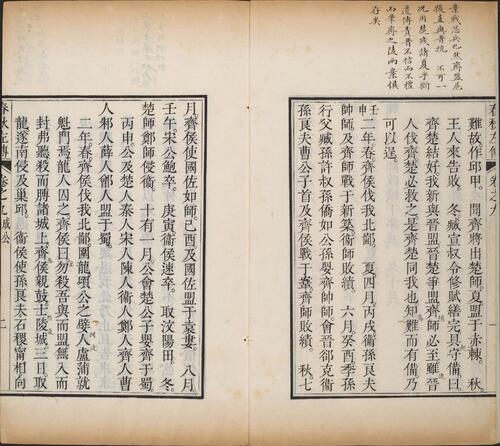 業戰忌兵也然齊盟尼
援直與晉抗 不可一
遺傳責晉不信而不禮
而筆齊之陵而棄俱
存矣
春秋左傳
卷之九
難故作邱甲。 聞齊將出楚師夏盟于赤棘。 秋
王人來告敗。 冬臧宣叔令修賦繕完具守備曰
齊楚結好我新與晉盟晉楚爭盟齊師必至雖晉
人伐齊楚必救之是齊楚同我也知難而有備乃
可以逞。
壬申 二年春齊侯伐我北鄙。 夏四月丙戌衞孫良夫
帥師及齊師戰于新築衞師敗績。 六月癸酉季孫
行父臧孫許叔孫僑如公孫嬰齊帥師會晉郤克衞
孫良夫曹公子首及齊侯戰于鞌齊師敗績。 秋七
月齊侯使國佐如師己酉及國佐盟于袁婁。 八月
壬午宋公鮑卒。 庚寅衞侯速卒。 取汶陽田。 冬
楚師鄭師侵衞。 十有一月公會楚公子嬰齊于蜀
丙申公及楚人秦人宋人陳人衞人鄭人齊人曹
人邾人薛人鄫人盟于蜀。
二年春齊侯伐我北鄙圍龍頃公之嬖人盧蒲就
魁門焉龍人囚之齊侯曰勿殺吾與而盟無入而
封弗聽殺而膊諸城上齊侯親鼓士陵城三日取
龍遂南侵及巢邱。 衞侯使孫良夫石稷甯相向
春秋左傳
卷之九 成公
二